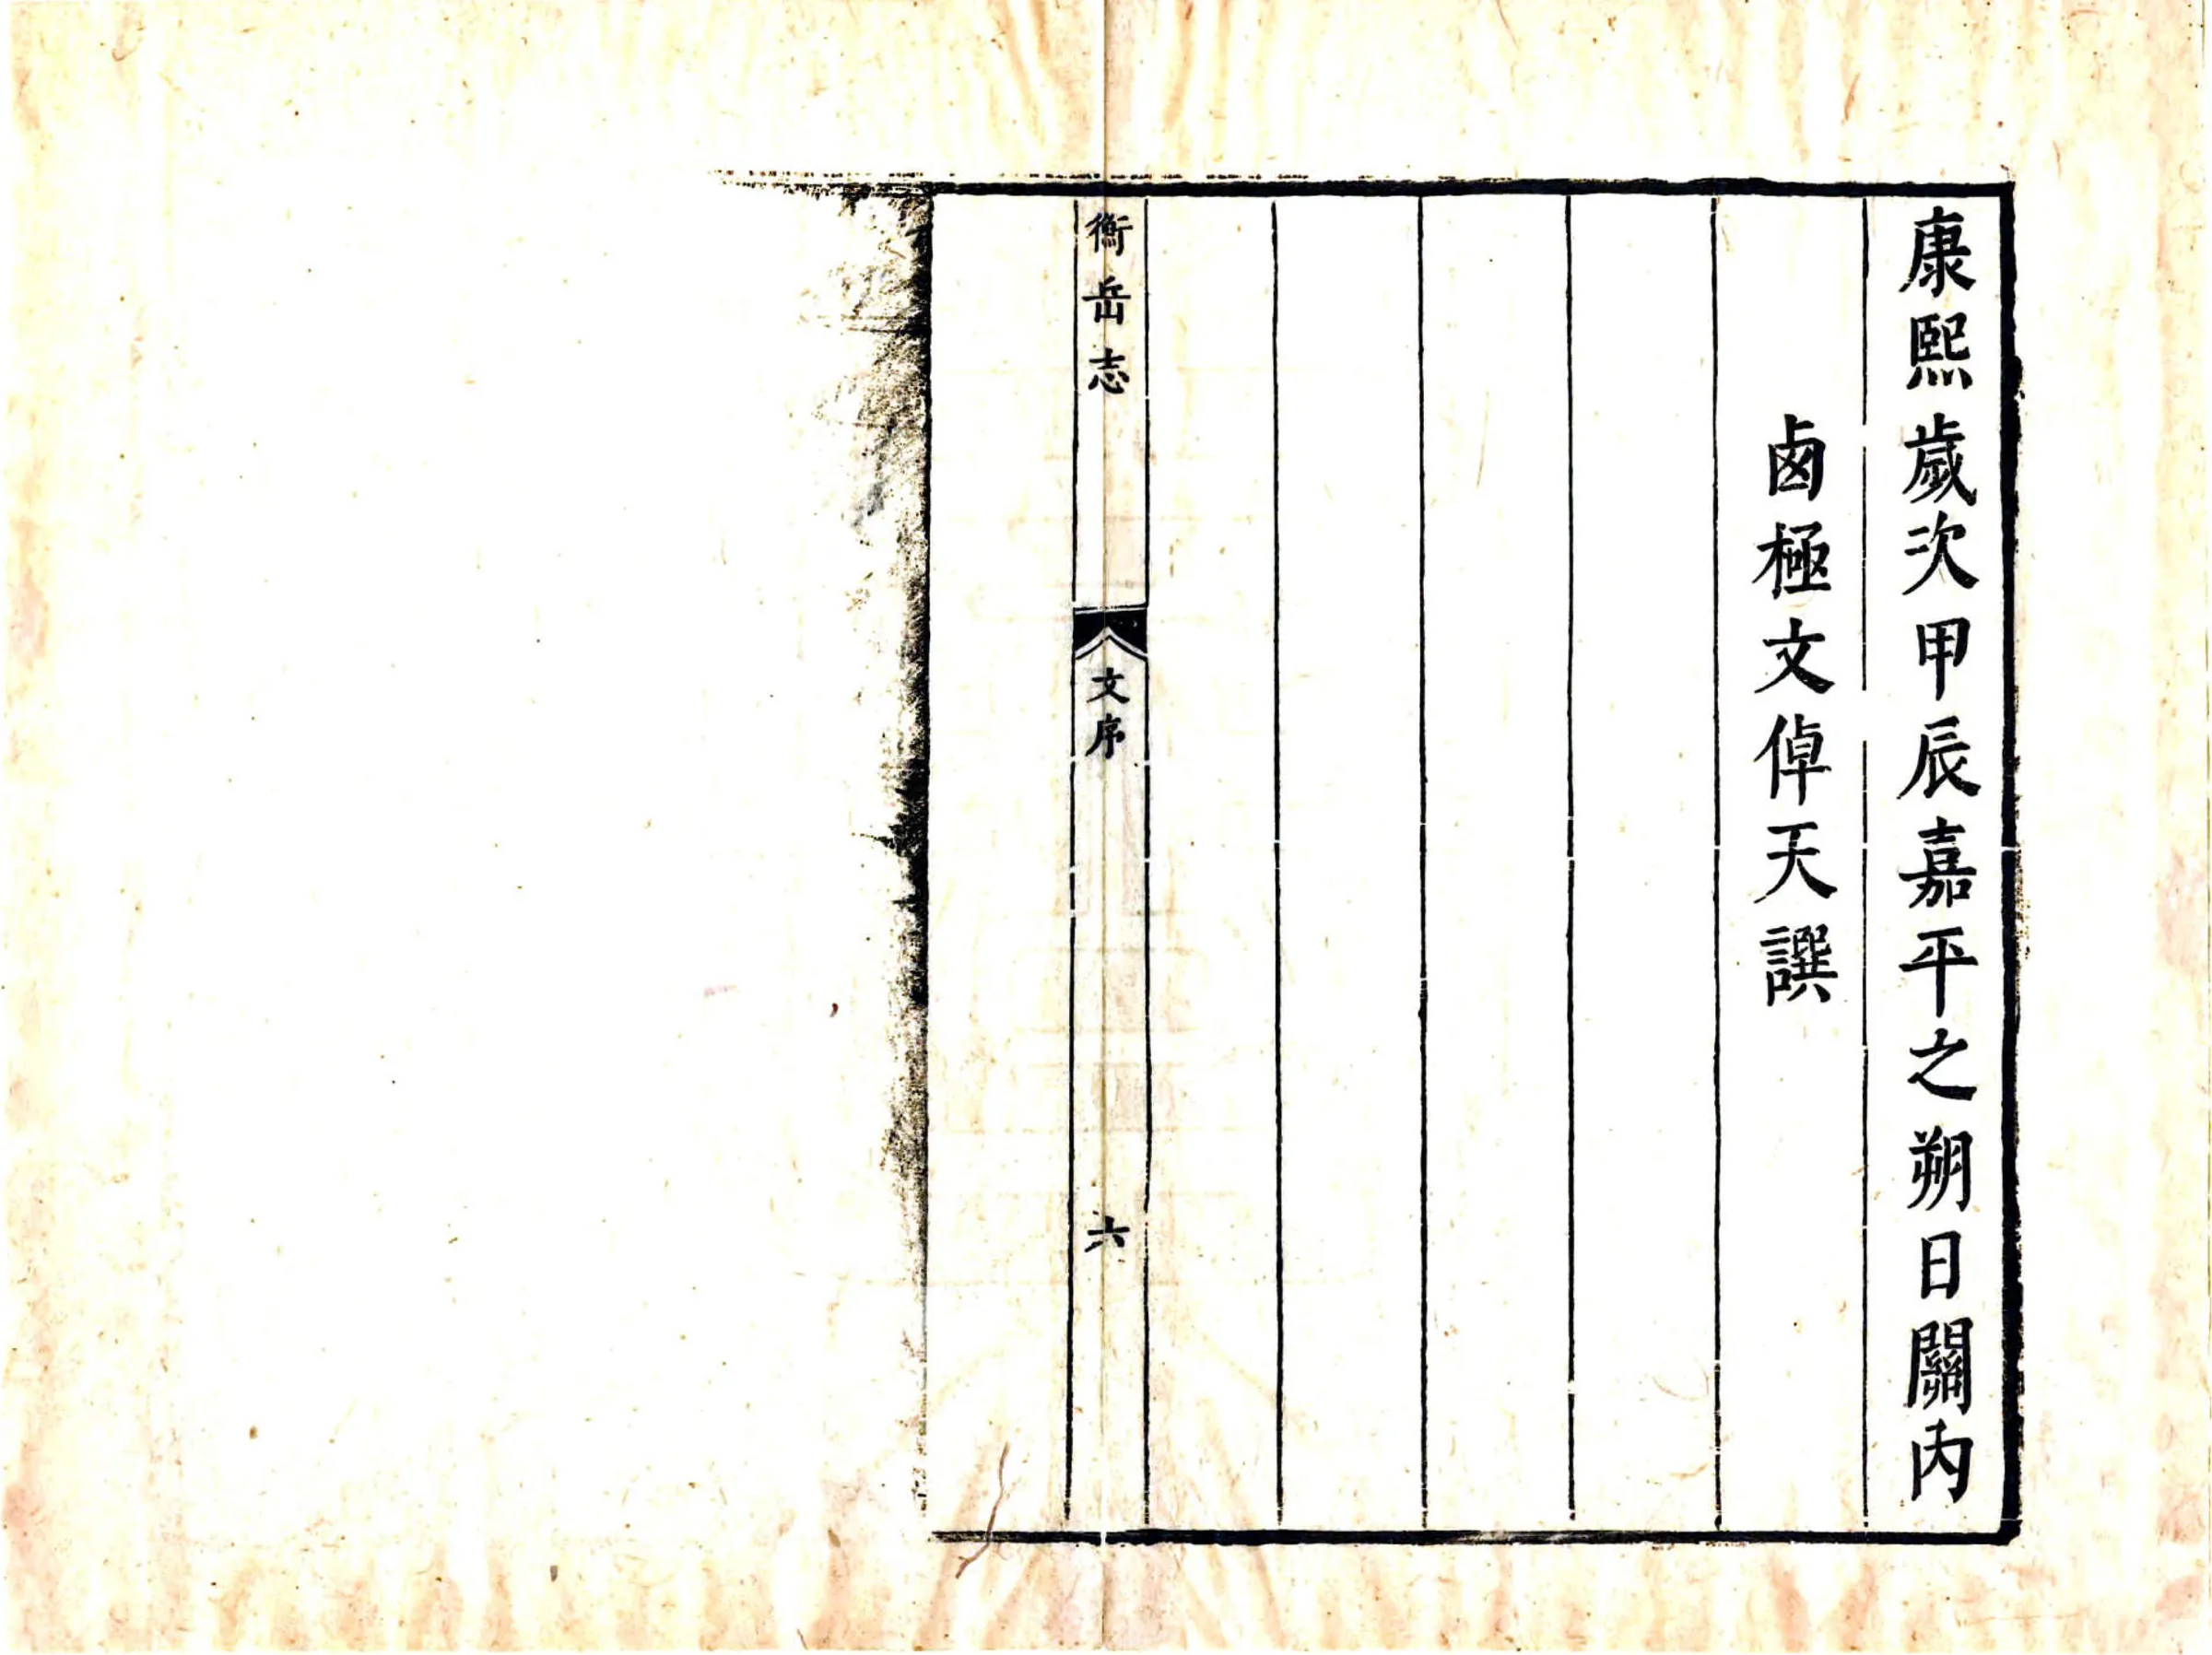 康熙歲次甲辰嘉平之朔日關内
卣極文倬天譔
衡岳志
文序
六